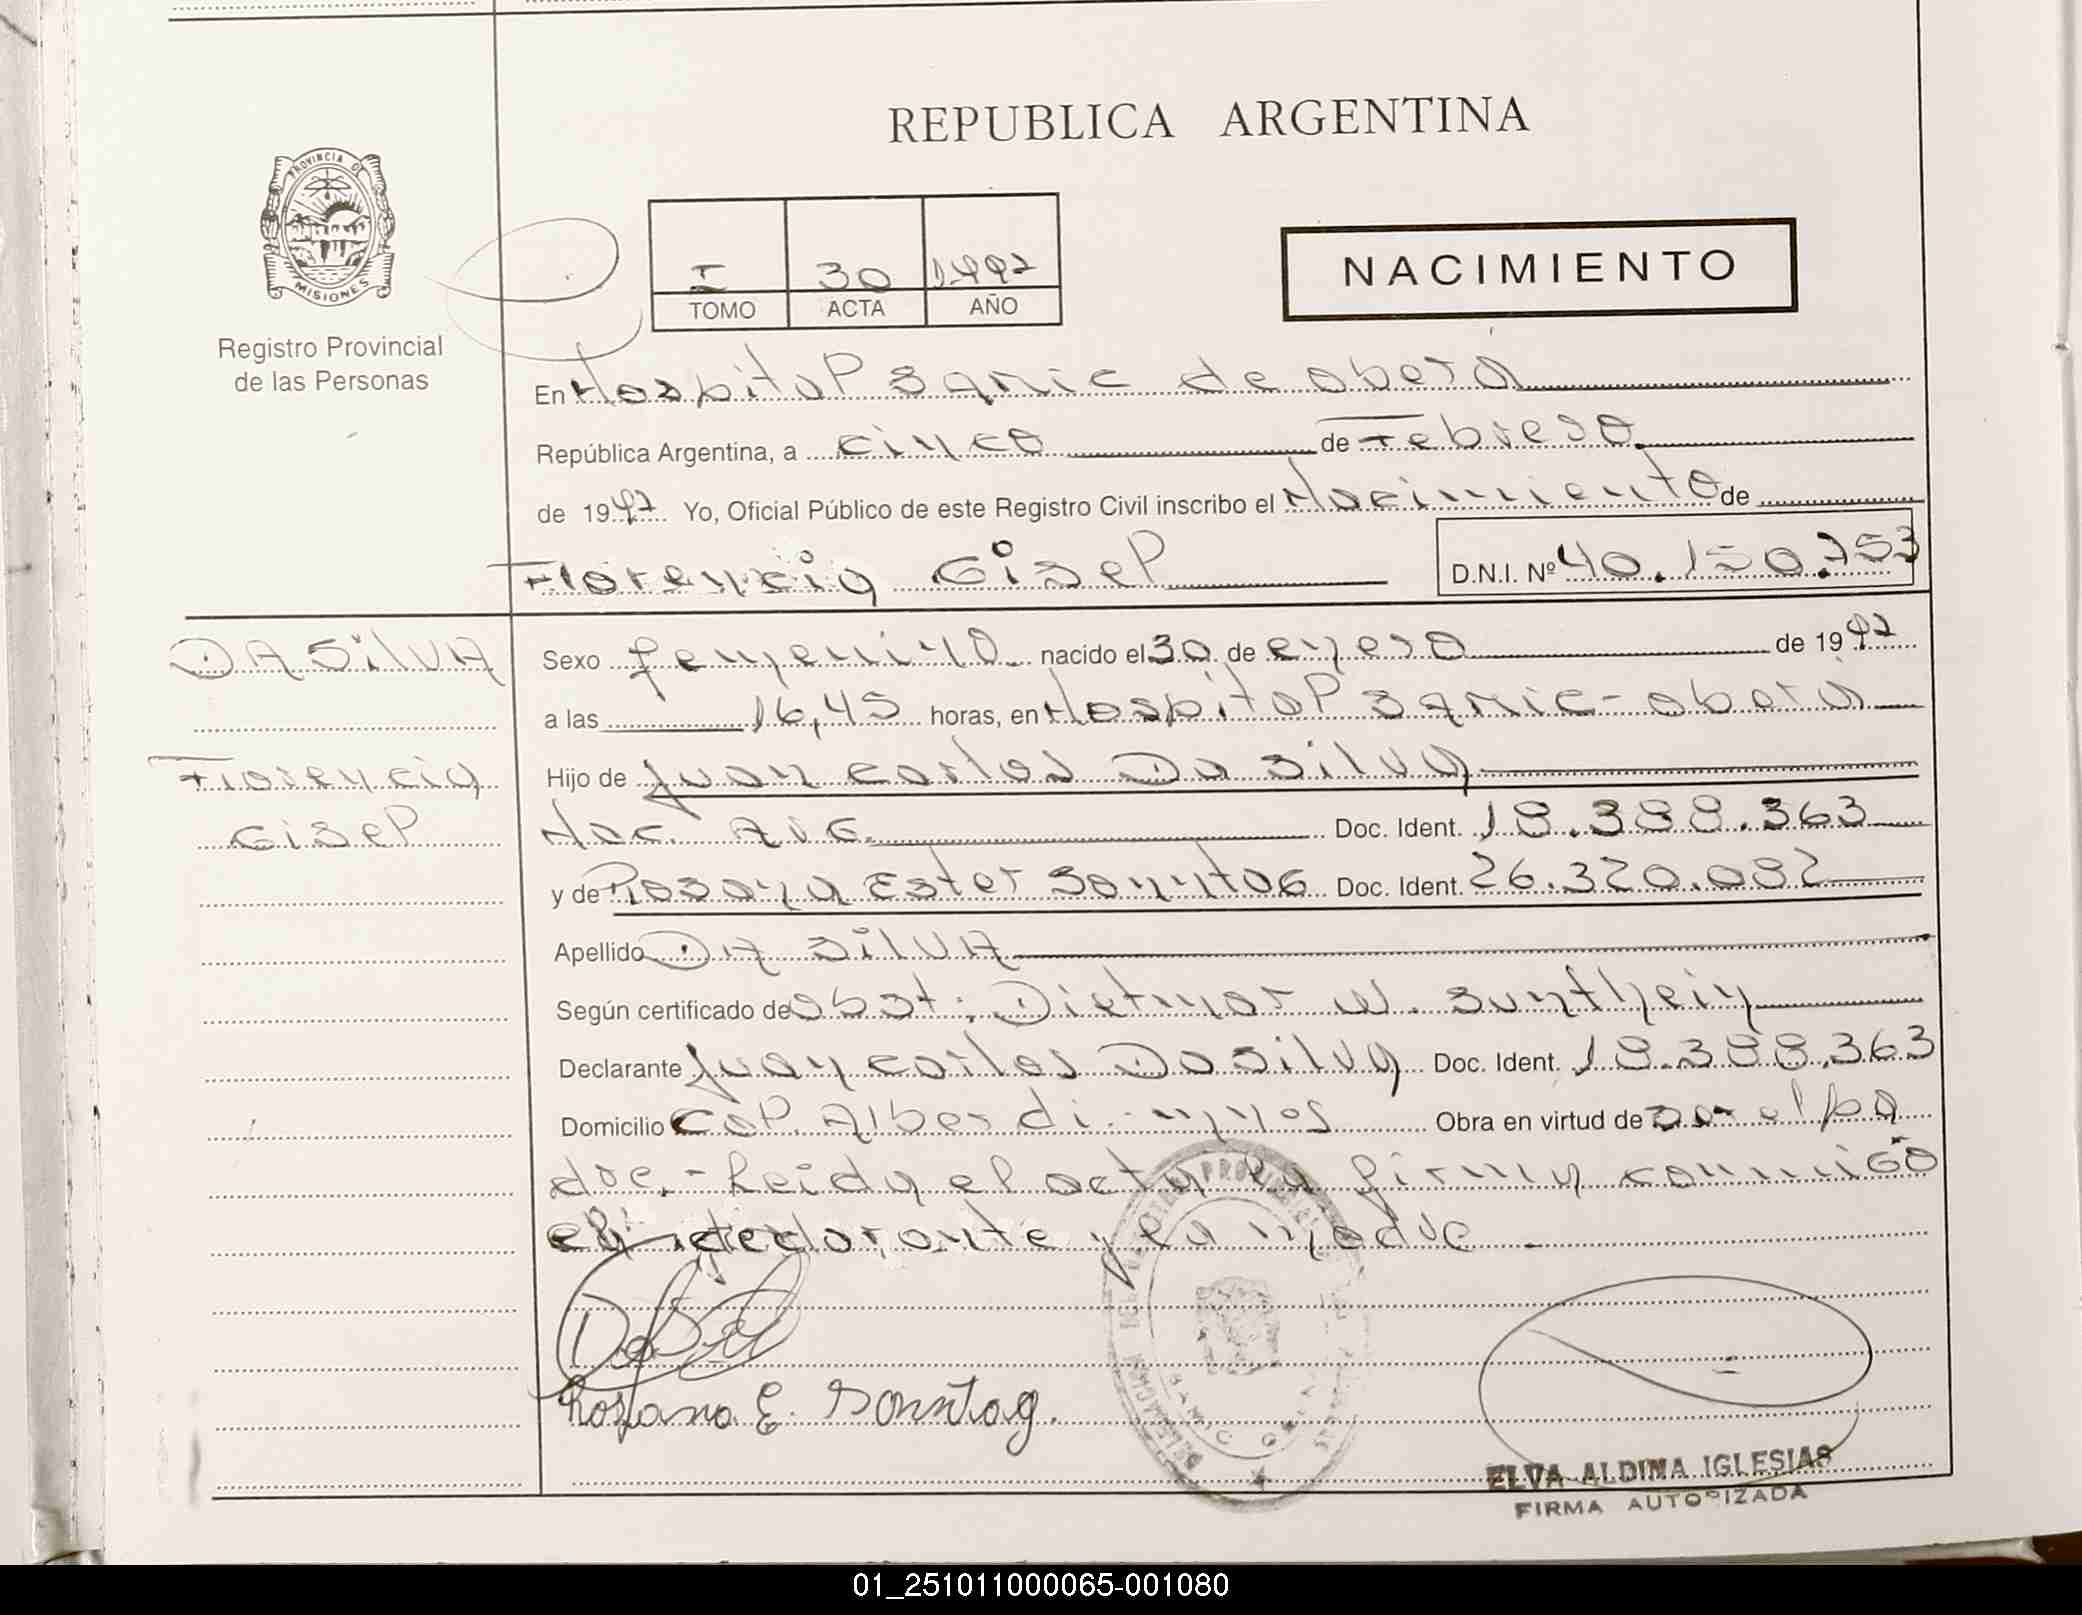 REPUBLICA ARGENTINA
PROVINCIA DE
MISIONES
Registro Provincial
de las Personas
I 30 1997
TOMO ACTA AÑO
NACIMIENTO
En Hospital Samic de oberá
República Argentina, a cinco de Febrero
de 1997 Yo, Oficial Público de este Registro Civil inscribo el Nacimiento de
Florencia Gisel D.N.I. Nº 40.150.753
DA SilVA
Florencia
Gisel
Sexo femenino nacido el 30 de enero de 1997
a las 16,45 horas, en Hospital Samic - oberá
Hijo de Juan Carlos Da Silva
Nac. Arg. Doc. Ident. 18.388.363
y de Rosana Ester Sonntag Doc. Ident. 26.320.082
Apellido DA SilVA
Según certificado de obst. Dietmar W. Sunthein
Declarante Juan Carlos Da Silva Doc. Ident. 18.388.363
Domicilio Col. Alberdi - mnes Obra en virtud de ser el pa
dre. - Leida el acta la firma conmigo
el declarante y la madre -
Rossana E. Sonntag.
ELVA ALDINA IGLESIAS
FIRMA AUTORIZADA
01_251011000065-001080